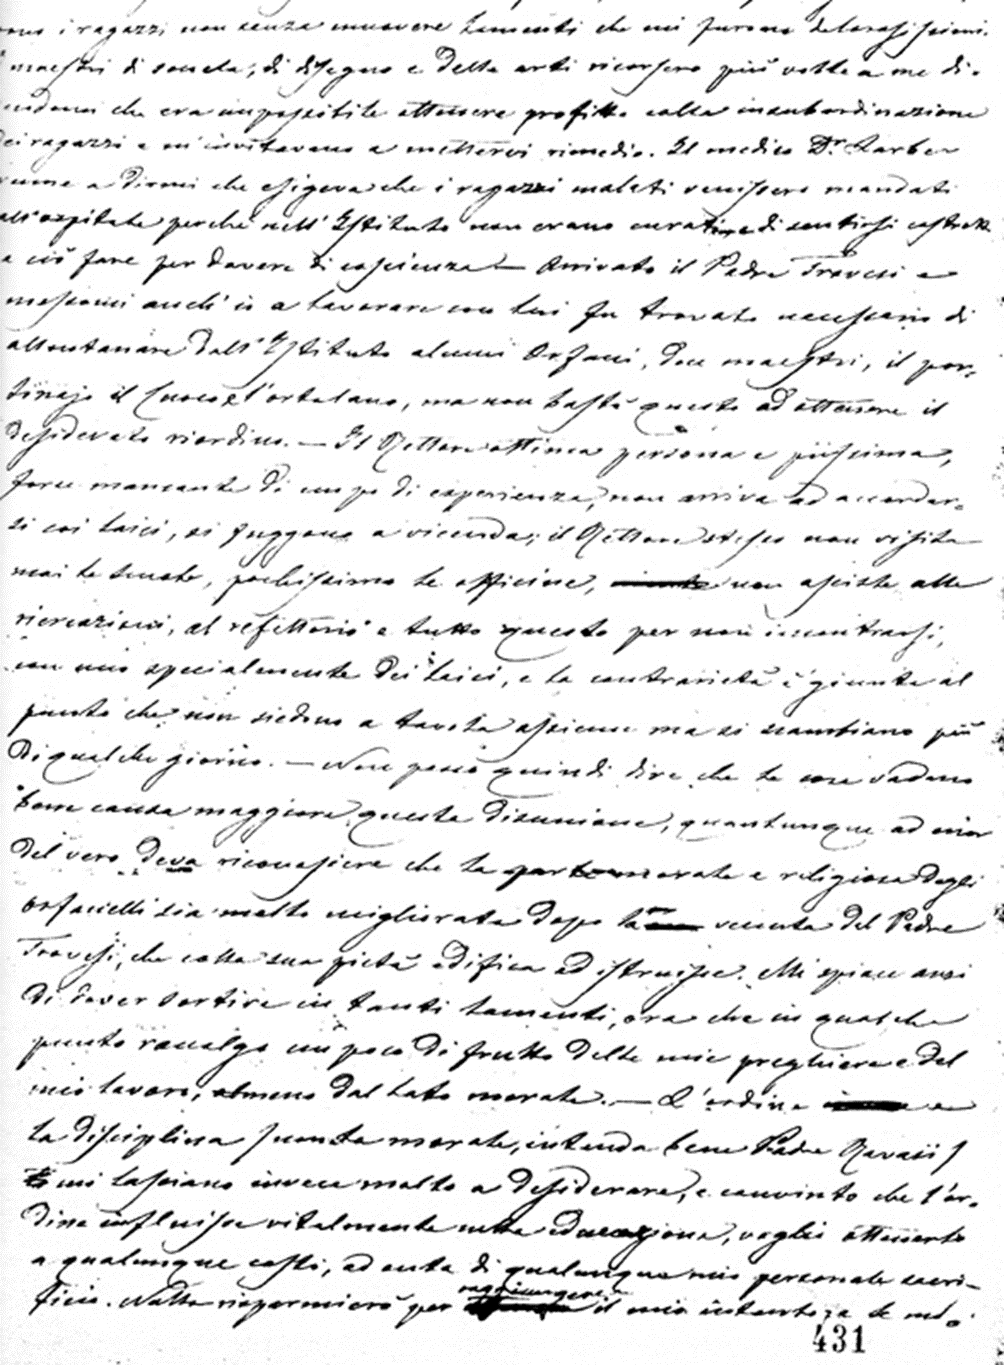 i ragazzi non senza muovere lamenti che mi furono
maestri di scuola, di disegno e delle arti ricorsero più volte a me di-
cendomi che era impossibile ottenere profitto colla insubordinazione
dei ragazzi e m'invitavano a mettervi rimedio. Il medico Dr.
venne a dirmi che esigeva che i ragazzi malati venissero mandati
all'ospitale perché nell'Istituto non erano curati e di sentirsi costretto
a ciò fare per dovere di coscienza — Arrivato il Padre Travesi e
messomi anch'io a lavorare con lui fu trovato necessario di
allontanare dall'Istituto alcuni Orfani, due maestri, il por-
tinajo il Cuoco e l'ortolano, ma non bastò questo ad ottenere il
desiderato riordino. — Il Rettore ottima persona e piissima,
forse mancante di un po di esperienza, non arriva ad accordar-
si coi laici, si fuggono a vicenda; il Rettore stesso non visita
mai le scuole, pochissimo le officine, non assiste alle
ricreazioni, al refettorio e tutto questo per non incontrarsi,
con uno specialmente dei laici, e la contrarietà è giunta al
punto che non siedono a tavola assieme ma si scambiano più
di qualche giorno. — Non posso quindi dire che le cose vadano
bene causa maggiore questa disunione, quantunque ad onor
del vero deva riconoscere che la parte morale e religiosa degli
orfanelli sia molto migliorata dopo la venuta del Padre
Travesi, che colla sua pietà edifica ed istruisce. Mi spiace anzi
di dover sortire in tanti lamenti, ora che in qualche
punto raccolgo un poco di frutto delle mie preghiere e del
mio lavoro, almeno dal lato morale. — L'ordine e
la disciplina (non la morale, intenda bene Padre Ravasi)
mi lasciano invece molto a desiderare, e convinto che l'or-
dine influisce vitalmente nella educazione, voglio ottenerlo
a qualunque costo, ad onta di qualunque mio personale sacri-
ficio. Nulla risparmierò per raggiungere il mio intento; a se
431